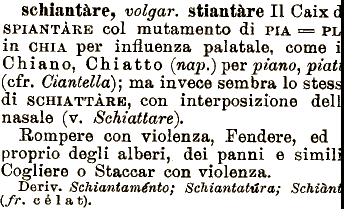 schiantàre, volgar. stiantàre Il Caix
SPIANTÀRE col mutamento di PIA = PL
in CHIA per influenza palatale, come i
Chiano, Chiatto (nap.) per piano, piatt
(cfr. Ciantella); ma invece sembra lo stess
di SCHIATTÀRE, con interposizione dell
nasale (v. Schiattare).
Rompere con violenza, Fendere, ed
proprio degli alberi, dei panni e simili
Cogliere o Staccar con violenza.
Deriv. Schiantaménto; Schiantatúra; Schiànt
(fr. célat).